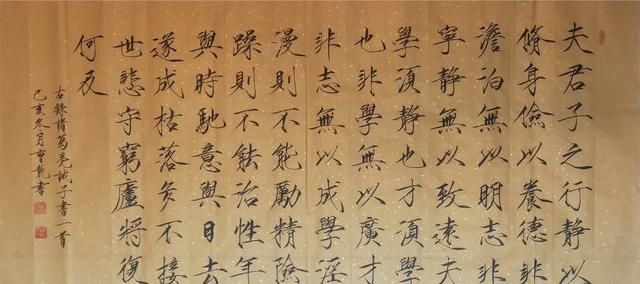 夫君子之行静以
脩身儉以養德非
澹泊無以明志非
寧静無以致遠夫
學須静也才須學
也非學無以廣才
非志無以成學淫
漫則不能勵精險
躁則不能治性年
與時馳意與日去
遂成枯落多不接
世悲守窮廬將復
何及
右錄諸葛亮誡子書一首
己亥冬月書